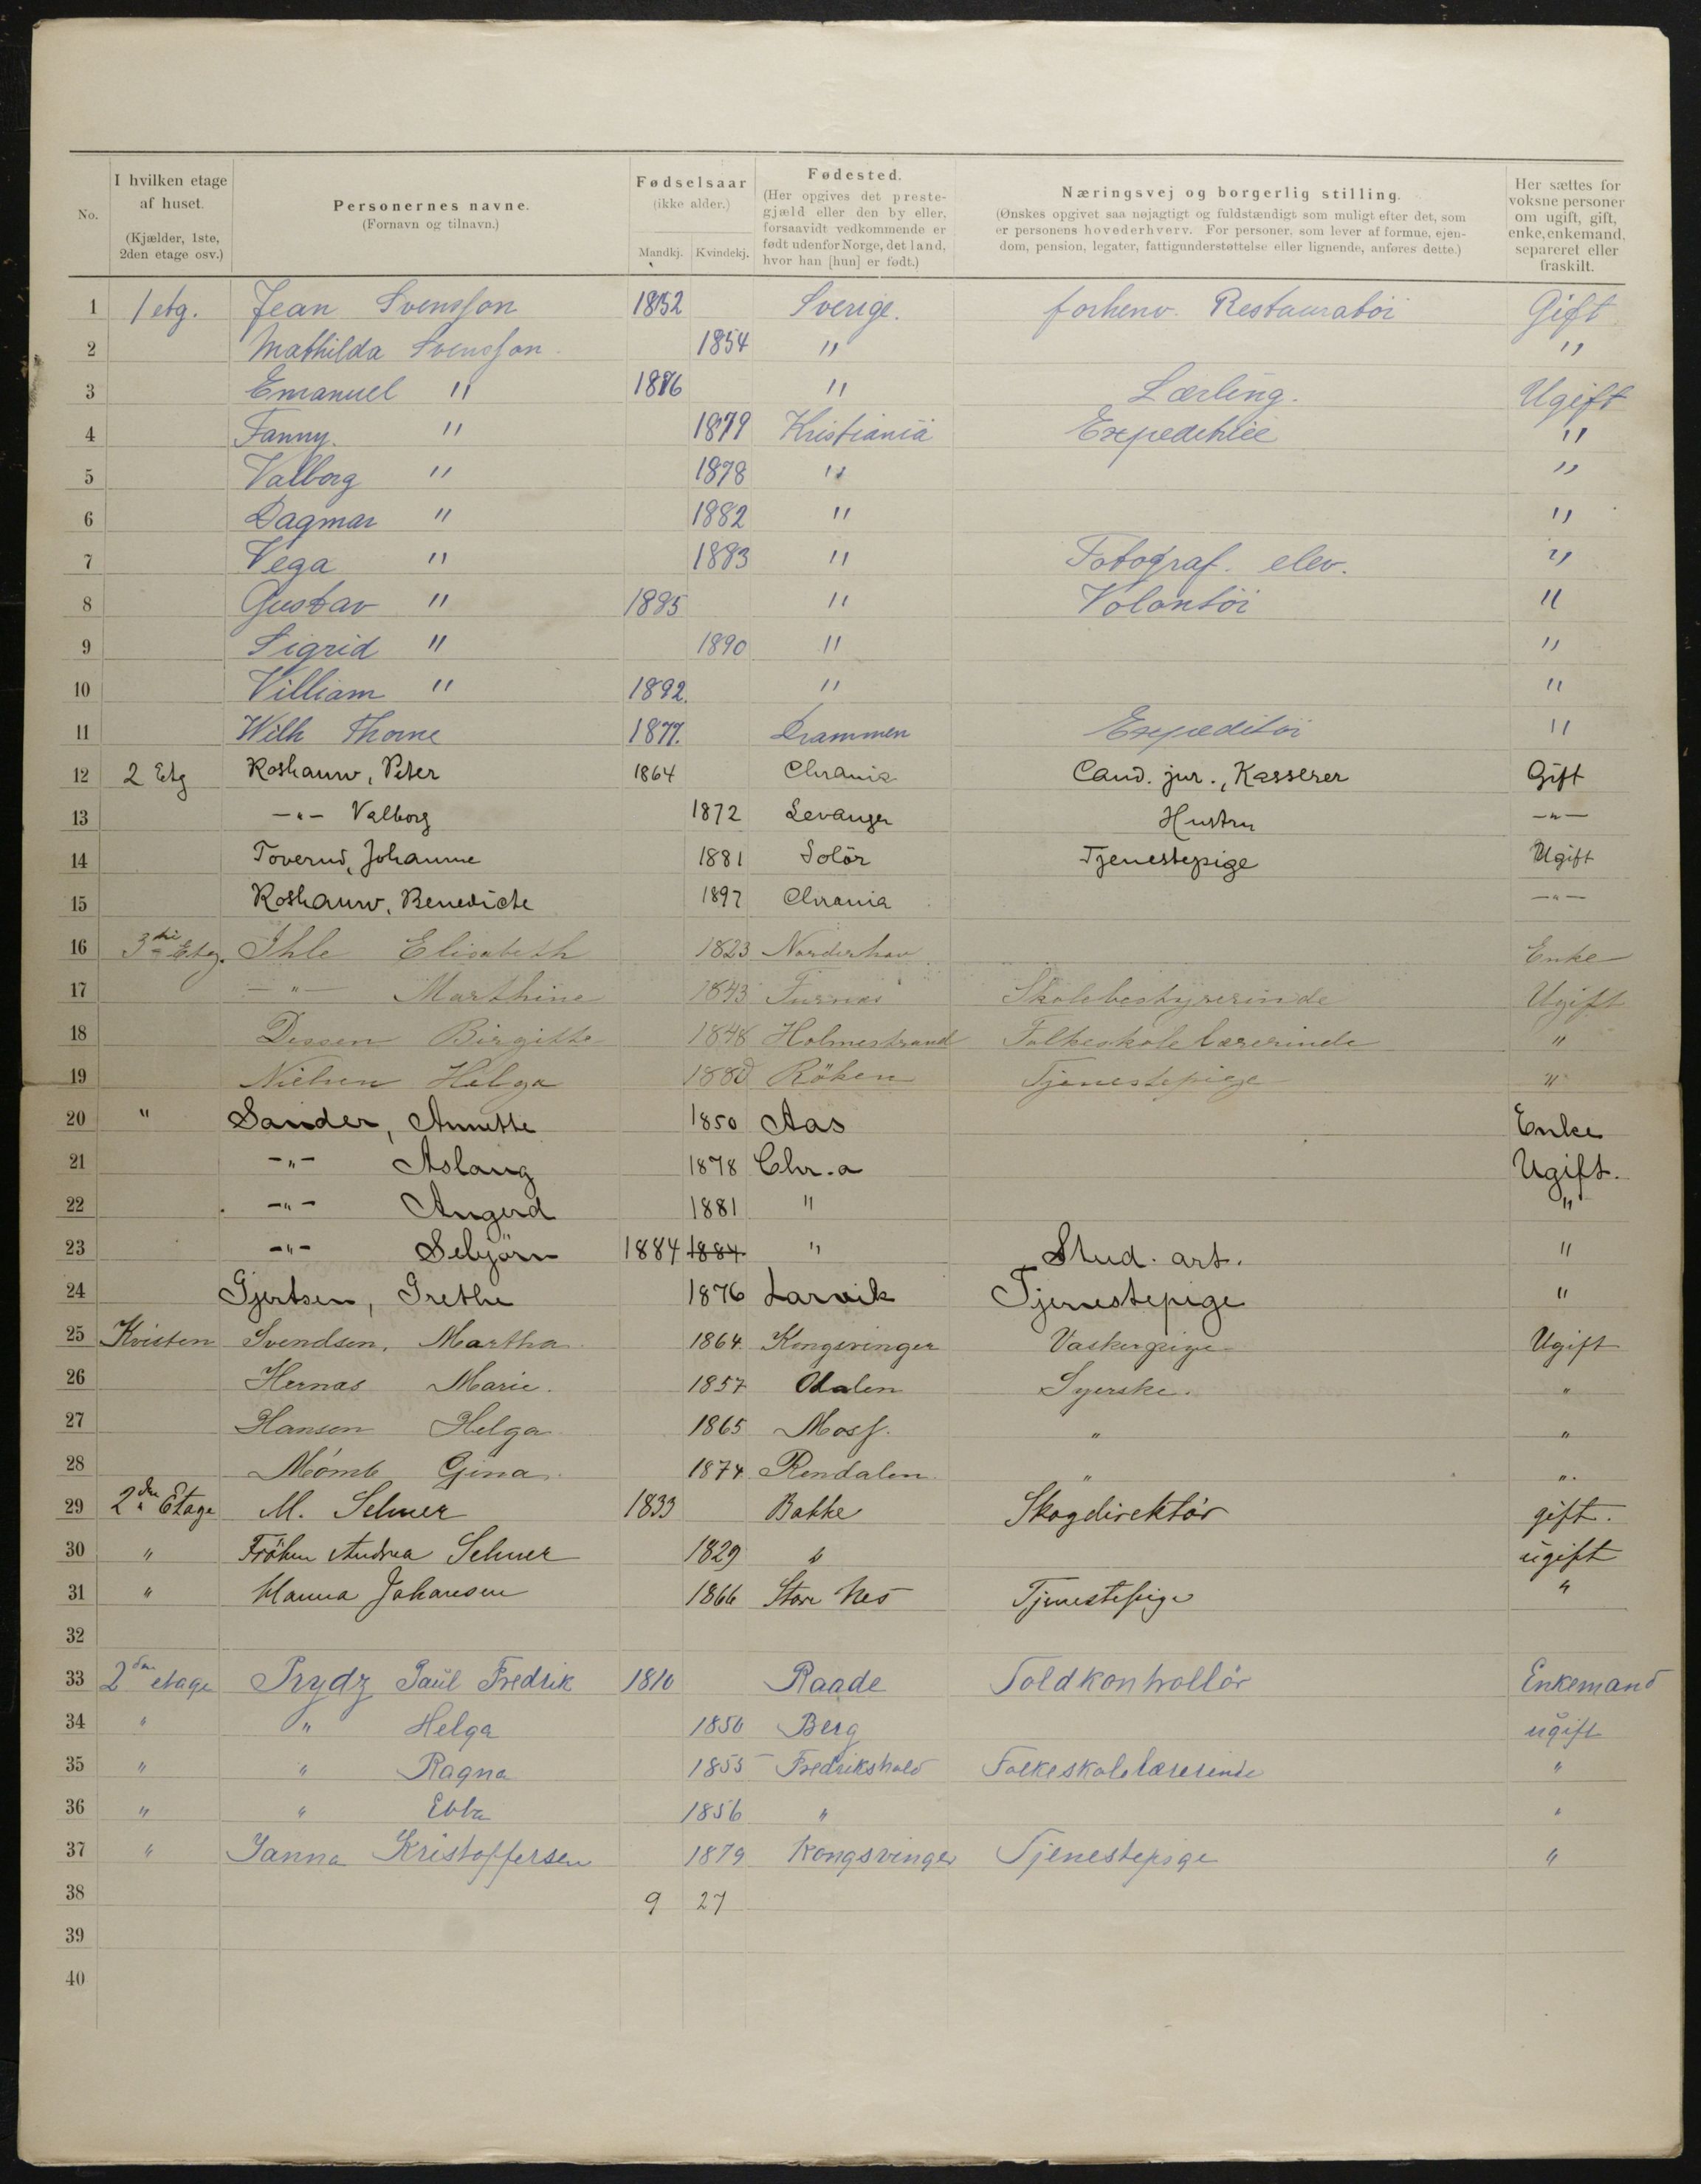 No.
I hvilken etage af huset. (Kjælder, 1ste, 2den etage osv.)
Personernes navne. (Fornavn og tilnavn.)
Fødselsaar (ikke alder.)
Mandkj. Kvindekj.
Fødested. (Her opgives det prestegjæld eller den by eller, forsaavidt vedkommende er født udenfor Norge, det land, hvor han [hun] er født.)
Næringsvej og borgerlig stilling. (Ønskes opgivet saa nøjagtigt og fuldstændigt som muligt efter det, som er personens hovederhverv. For personer, som lever af formue, ejendom, pension, legater, fattigunderstøttelse eller lignende, anføres dette.)
Her sættes for voksne personer om ugift, gift, enke, enkemand, separeret eller fraskilt.
1 1 etg. Jean Svensson 1852 Sverige. forhenv. Restauratör Gift
2 Mathilda Svensson 1854 " "
3 Emanuel " 1876 " Lærling. Ugift
4 Fanny. " 1879 Kristiania Expeditrice "
5 Valborg " 1878 " "
6 Dagmar " 1882 " "
7 Vega " 1883 " Fotograf. elev. "
8 Gustav " 1885 " Volontör "
9 Sigrid " 1890 " "
10 Villiam " 1892. " "
11 Wilh Thorne 1877. Drammen Expeditör "
12 2 Etg Roshauw, Peter 1864 Chrania Cand. jur., Kasserer Gift
13 -"- Valborg 1872 Levanger Hustru -"-
14 Toverud, Johanne 1881 Solör Tjenestepige Ugift
15 Roshauw, Benedicte 1897 Chrania -"-
16 3die Etg. Ihle Elisabeth 1823 Norderhov Enke
17 -"- Marthine 1843 Furnes Skolebestyrerinde Ugift
18 Dessen Birgitte 1848 Holmestrand Folkeskolelærerinde "
19 Nielsen Helga 1880 Röken Tjenestepige "
20 " Sander, Annette 1850 Aas Enke
21 -"- Aslaug 1878 Chr.a Ugift.
22 -"- Angerd 1881 " "
23 -"- Sebjörn 1884 1884 " Stud. art. "
24 Gjertsen, Grethe 1876 Larvik Tjenestepige "
25 Kvisten Svendsen, Martha 1864 Kongsvinger Vaskerpige Ugift
26 Hernæs Marie. 1857 Odalen Syerske. "
27 Hansen Helga 1865 Moss. " "
28 Mömb Gina. 1874 Rendalen. " ".
29 2den Etage M. Selmer 1833 Bakke Skogdirektör gift.
30 " Fröken Andrea Selmer 1829 " ugift
31 " Hanna Johansen 1866 Store Nes Tjenestepige "
32
33 2den etage Prydz Paul Fredrik 1810 Raade Toldkontrollör Enkemand
34 " " Helga 1850 Berg ugift
35 " " Ragna 1855 Fredrikshald Folkeskolelærerinde "
36 " " Ebba 1856 " "
37 " Janna Kristoffersen 1879 Kongsvinger Tjenestepige "
38 9 27
39
40